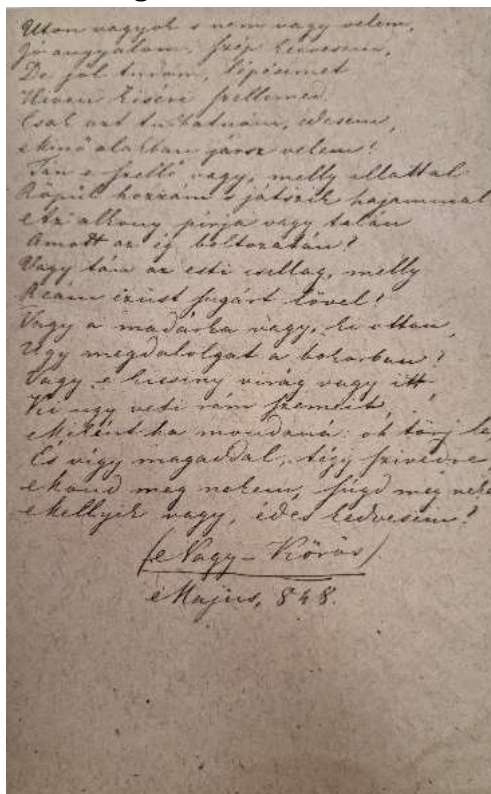 Uton vagyok s nem vagy velem,
Jó angyalom, szép kedvesem,
De jól tudom, lépésemet
Hiven kiséri szellemed.
Csak azt tudhatnám, édesem,
Minő alakban jársz velem?
Tán e szellő vagy, melly illattal
Röpül hozzám s játszik hajammal
Az alkony pirja vagy talán
Amott az ég boltozatán?
Vagy tán az esti csillag, melly
Reám ezüst sugárt lövel?
Vagy a madárka vagy, ki ottan,
Ugy megdalolgat a bokorban?
Vagy e kicsiny virág vagy itt
Ki ugy veti rám szemeit,
Miként ha mondaná: oh törj le,
És vígy magaddal, tégy szivedre,
Mond meg nekem, súgd meg neke
Mellyik vagy, édes kedvesem?
(Nagy-Kőrös).
Majus, 848.